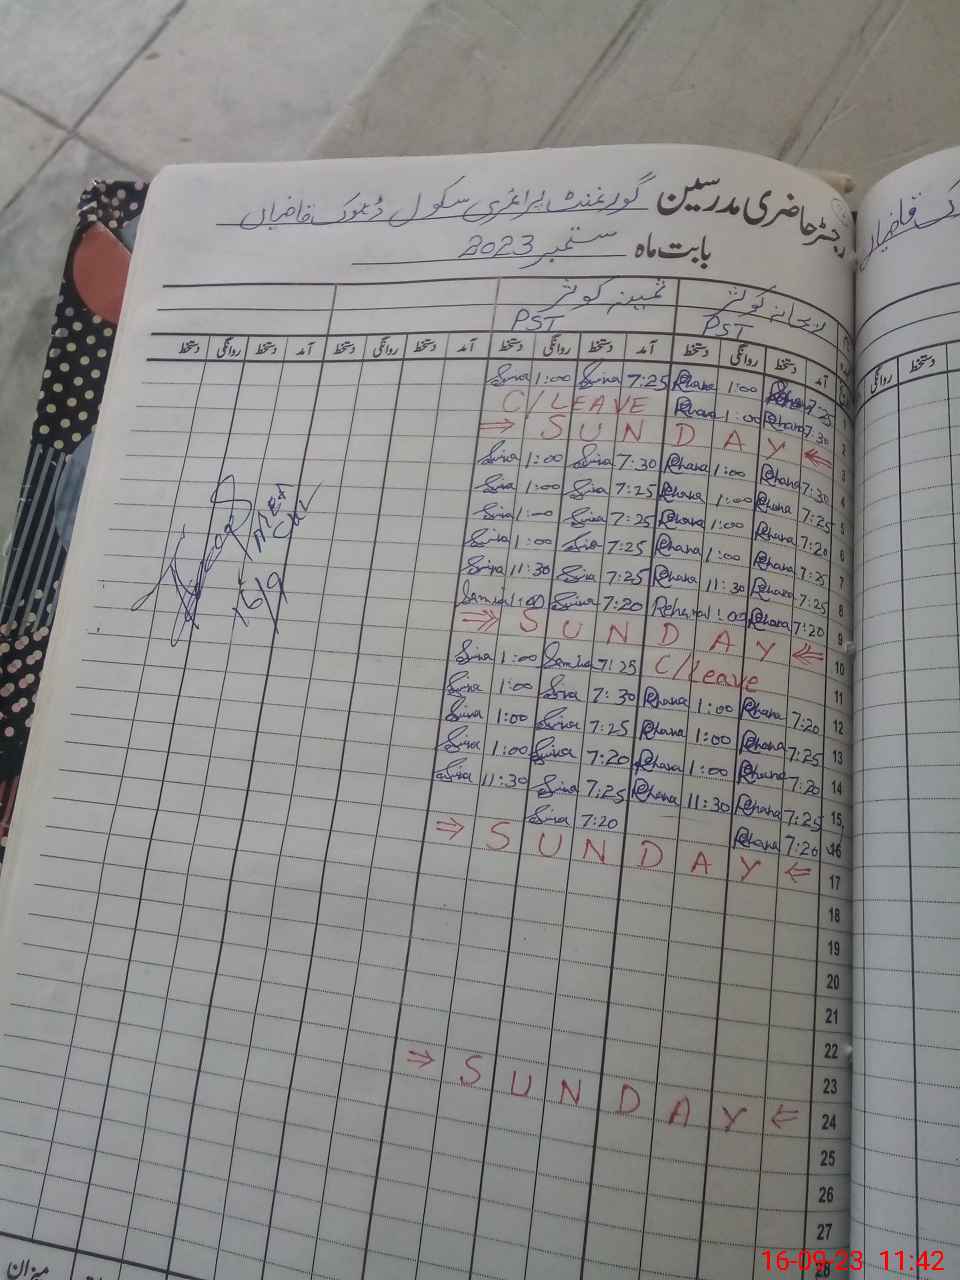 رجسٹر حاضری مدرسین گورنمنٹ پرائمری سکول ڈھوک قاضیاں
بابت ماہ ستمبر 2023
ریحانہ کوثر ثمینہ کوثر
PST PST
آمد دستخط روانگی دستخط آمد دستخط روانگی دستخط آمد دستخط روانگی دستخط آمد دستخط روانگی دستخط
1 7:25 Rhana 1:00 Rhana 7:25 1:00
2 7:30 Rhana 1:00 Rhana C/LEAVE
3 ⇐ SUNDAY ⇒
4 7:30 Rhana 1:00 Rhana 7:30 1:00
5 7:25 Rhana 1:00 Rhana 7:25 1:00
6 7:20 Rhana 1:00 Rhana 7:25 1:00
7 7:25 Rhana 1:00 Rhana 7:25 1:00
8 7:25 Rhana 11:30 Rhana 7:25 11:30
9 7:20 Rhana 1:00 Rehana 7:20 1:00
10 ⇐ SUNDAY ⇒
11 C/Leave 7:25 1:00
12 7:20 Rhana 1:00 Rhana 7:30 1:00
13 7:25 Rhana 1:00 Rhana 7:25 1:00
14 7:20 Rhana 1:00 Rhana 7:20 1:00
15 7:25 Rhana 11:30 Rhana 7:25 11:30
16 7:20 Rhana 7:20
17 ⇐ SUNDAY ⇒
18
19
20
21
22
23
24 ⇐ SUNDAY ⇒
25
26
27
28
16/9
میزان
دستخط
روانگی
16-09-23 11:42